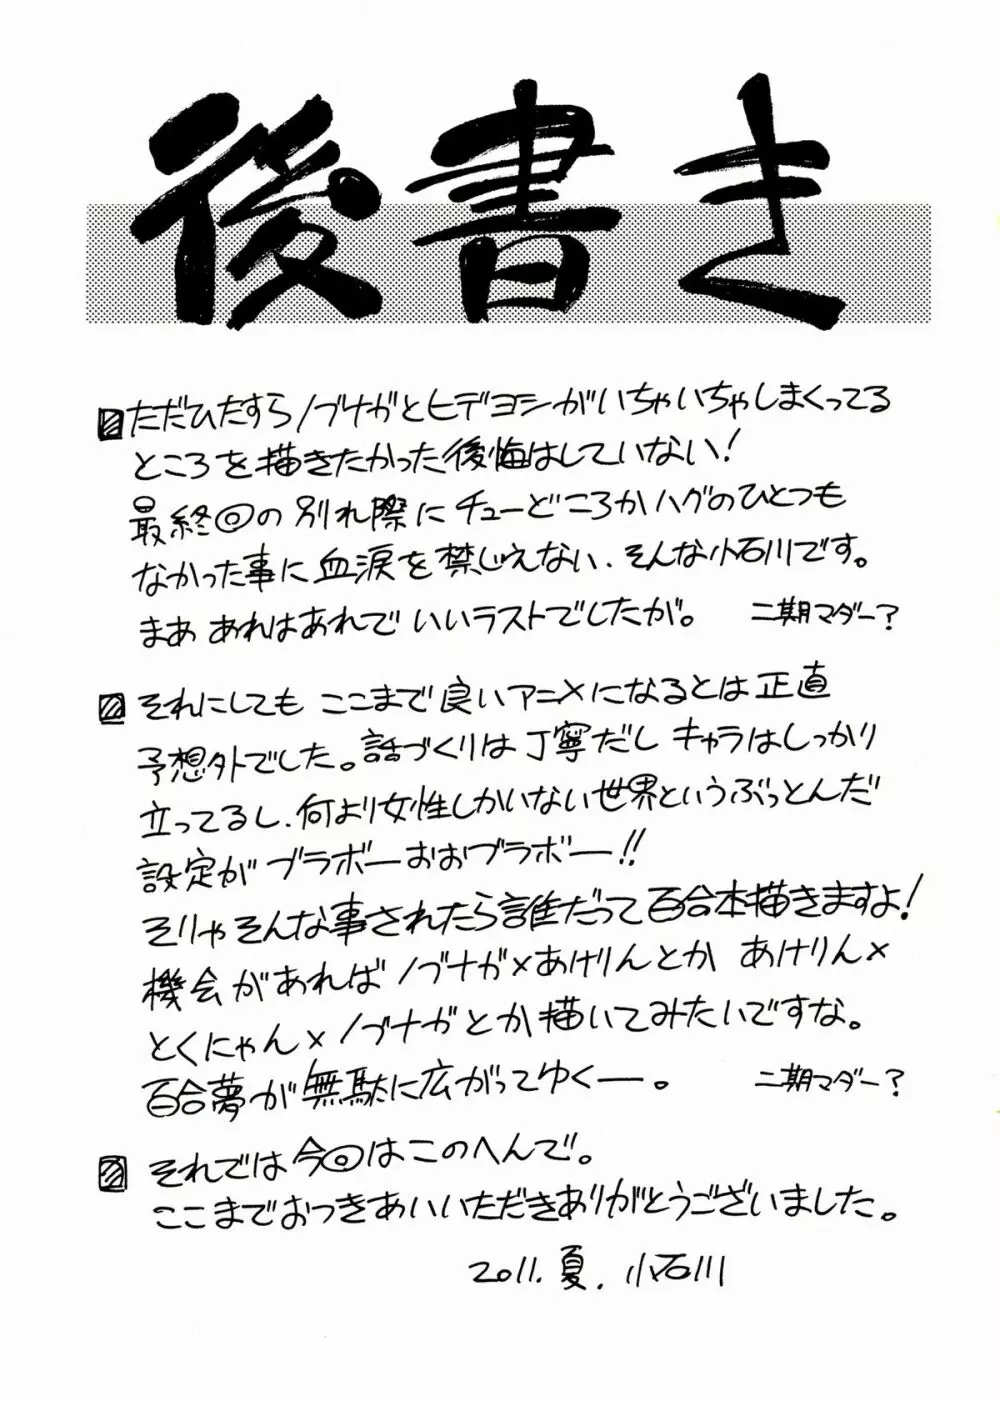 後書き
ただひたすらノブナガとヒデヨシがいちゃいちゃしまくってる
ところを描きたかった後悔はしていない!
最終回の別れ際にチューどころかハグのひとつも
なかった事に血涙を禁じえない、そんな小石川です。
まああれはあれでいいラストでしたが。 二期マダー?
それにしてもここまで良いアニメになるとは正直
予想外でした。話づくりは丁寧だしキャラはしっかり
立ってるし、何より女性しかいない世界というぶっとんだ
設定がブラボーおおブラボー!!
そりゃそんな事されたら誰だって百合本描きますよ!
機会があればノブナガ×あけりんとか あけりん×
とくにゃん×ノブナガとか描いてみたいですな。
百合夢が無駄に広がってゆくー。 二期マダー?
それでは今回はこのへんで。
ここまでおつきあいいただきありがとうございました。
2011.夏. 小石川